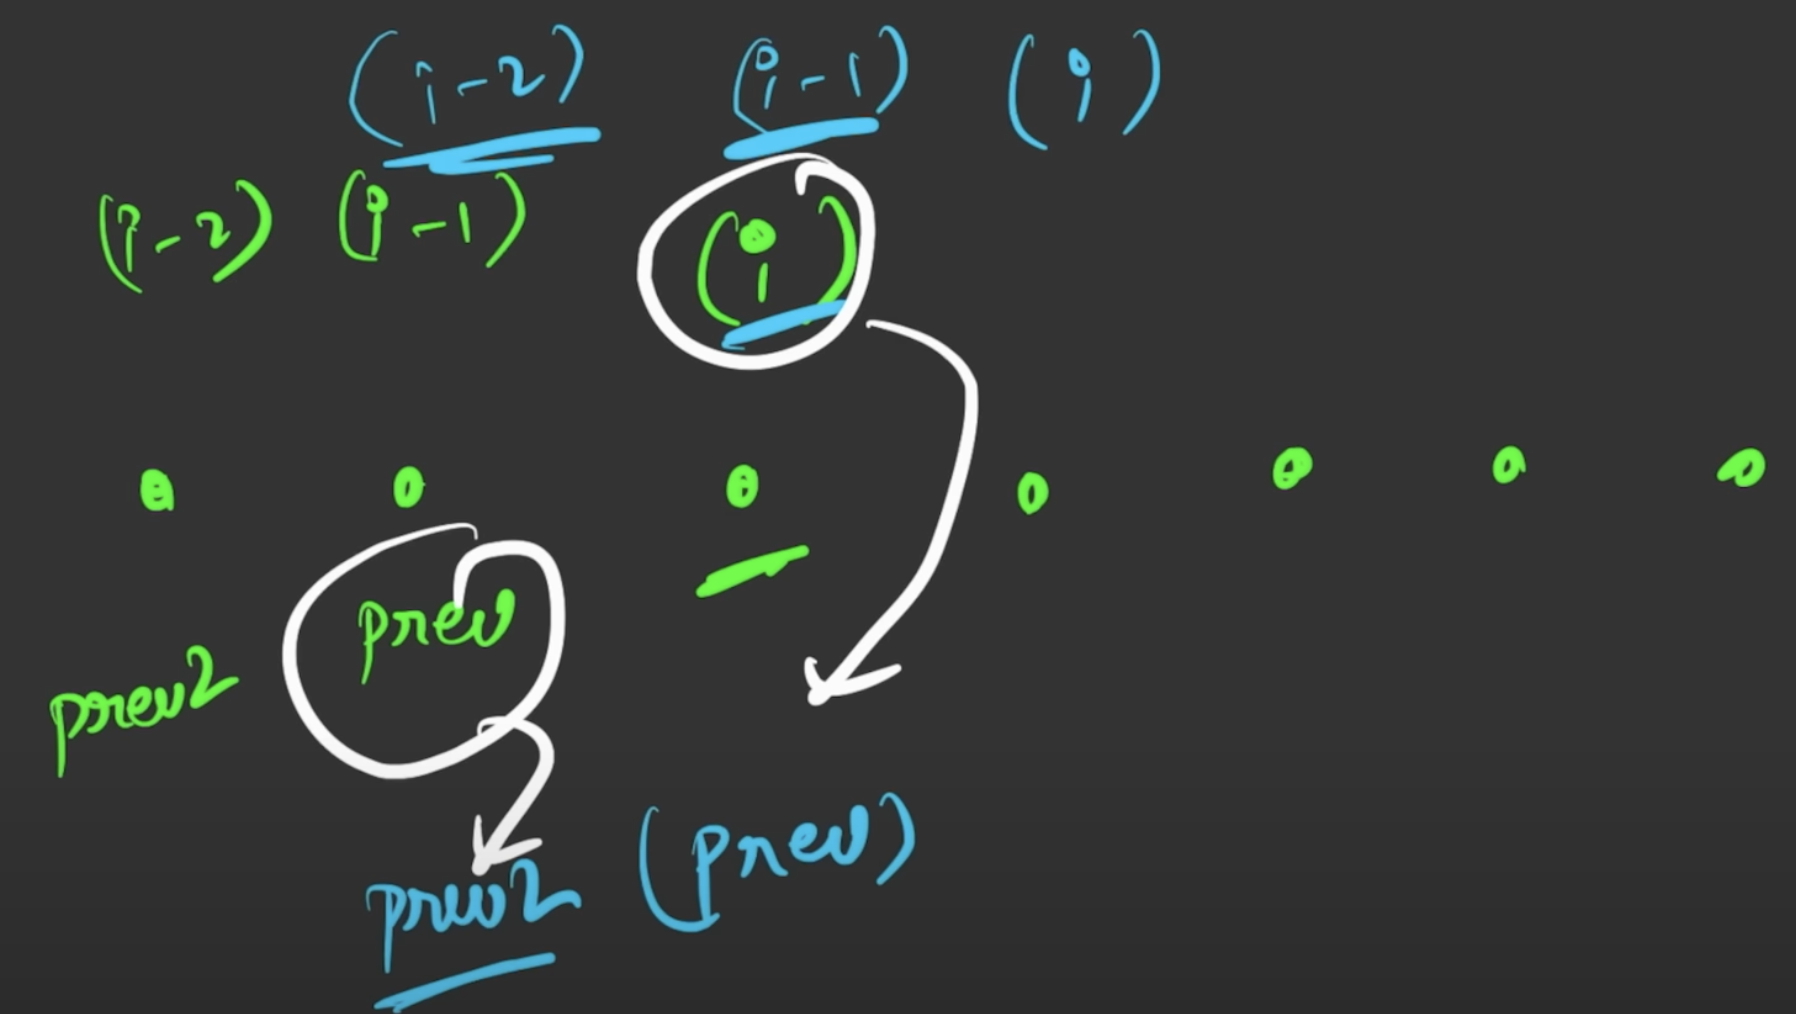 (i-2) (i-1) (i)
(i-2) (i-1) (i)
prev2 prev
prev2 (prev)